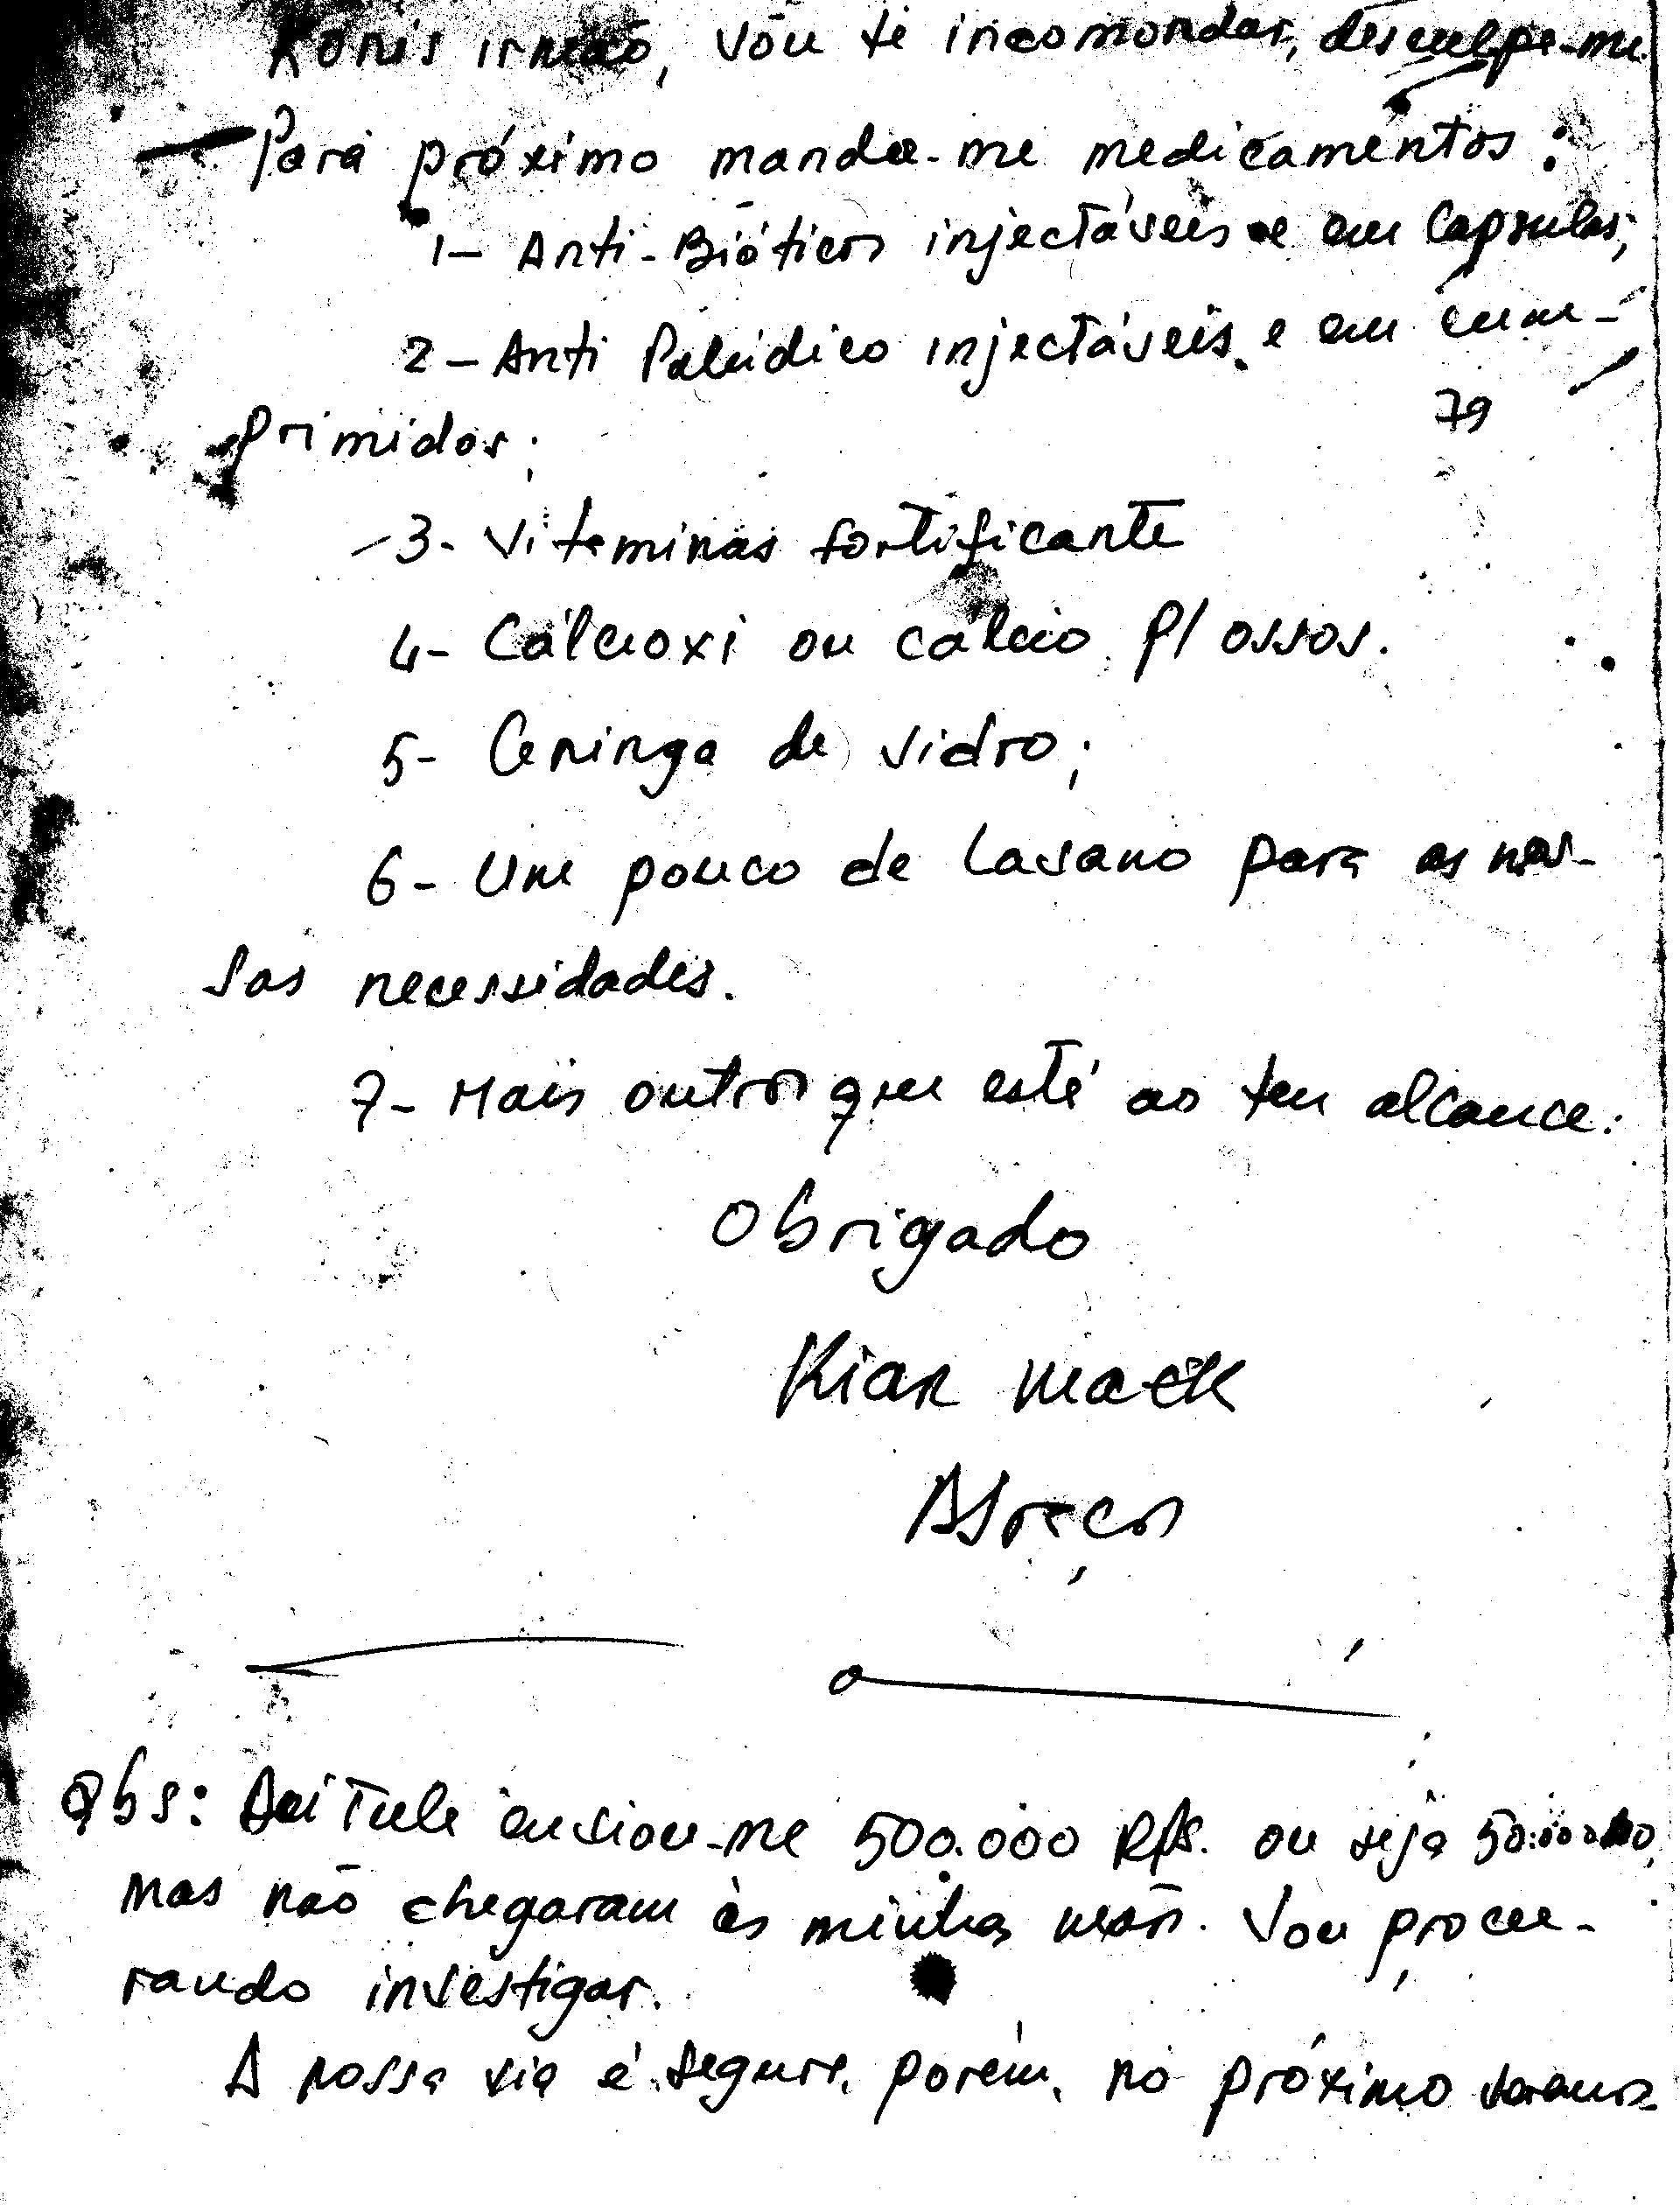 Konis irmão, vou te incomondar, desculpe-me.
Para próximo manda-me medicamentos:
1- Anti-Bióticos injectáveis e em Capsulas;
2- Anti Paludico injectáveis e em cum-
79
primidos;
3- Vitaminas fortificante
4- Cálcioxi ou cálcio p/ ossos.
5- Ceringa de vidro;
6- Um pouco de Lavano para as nos-
sas necessidades.
7- Mais outros que esté ao teu alcance.
Obrigado
Kiar mack
Abraços
Obs: Aei Tule enviou-me 500.000 Rps. ou seja
mas não chegaram às minhas mãos. Vou procu-
rando investigar.
A nossa via é segura, porém, no próximo